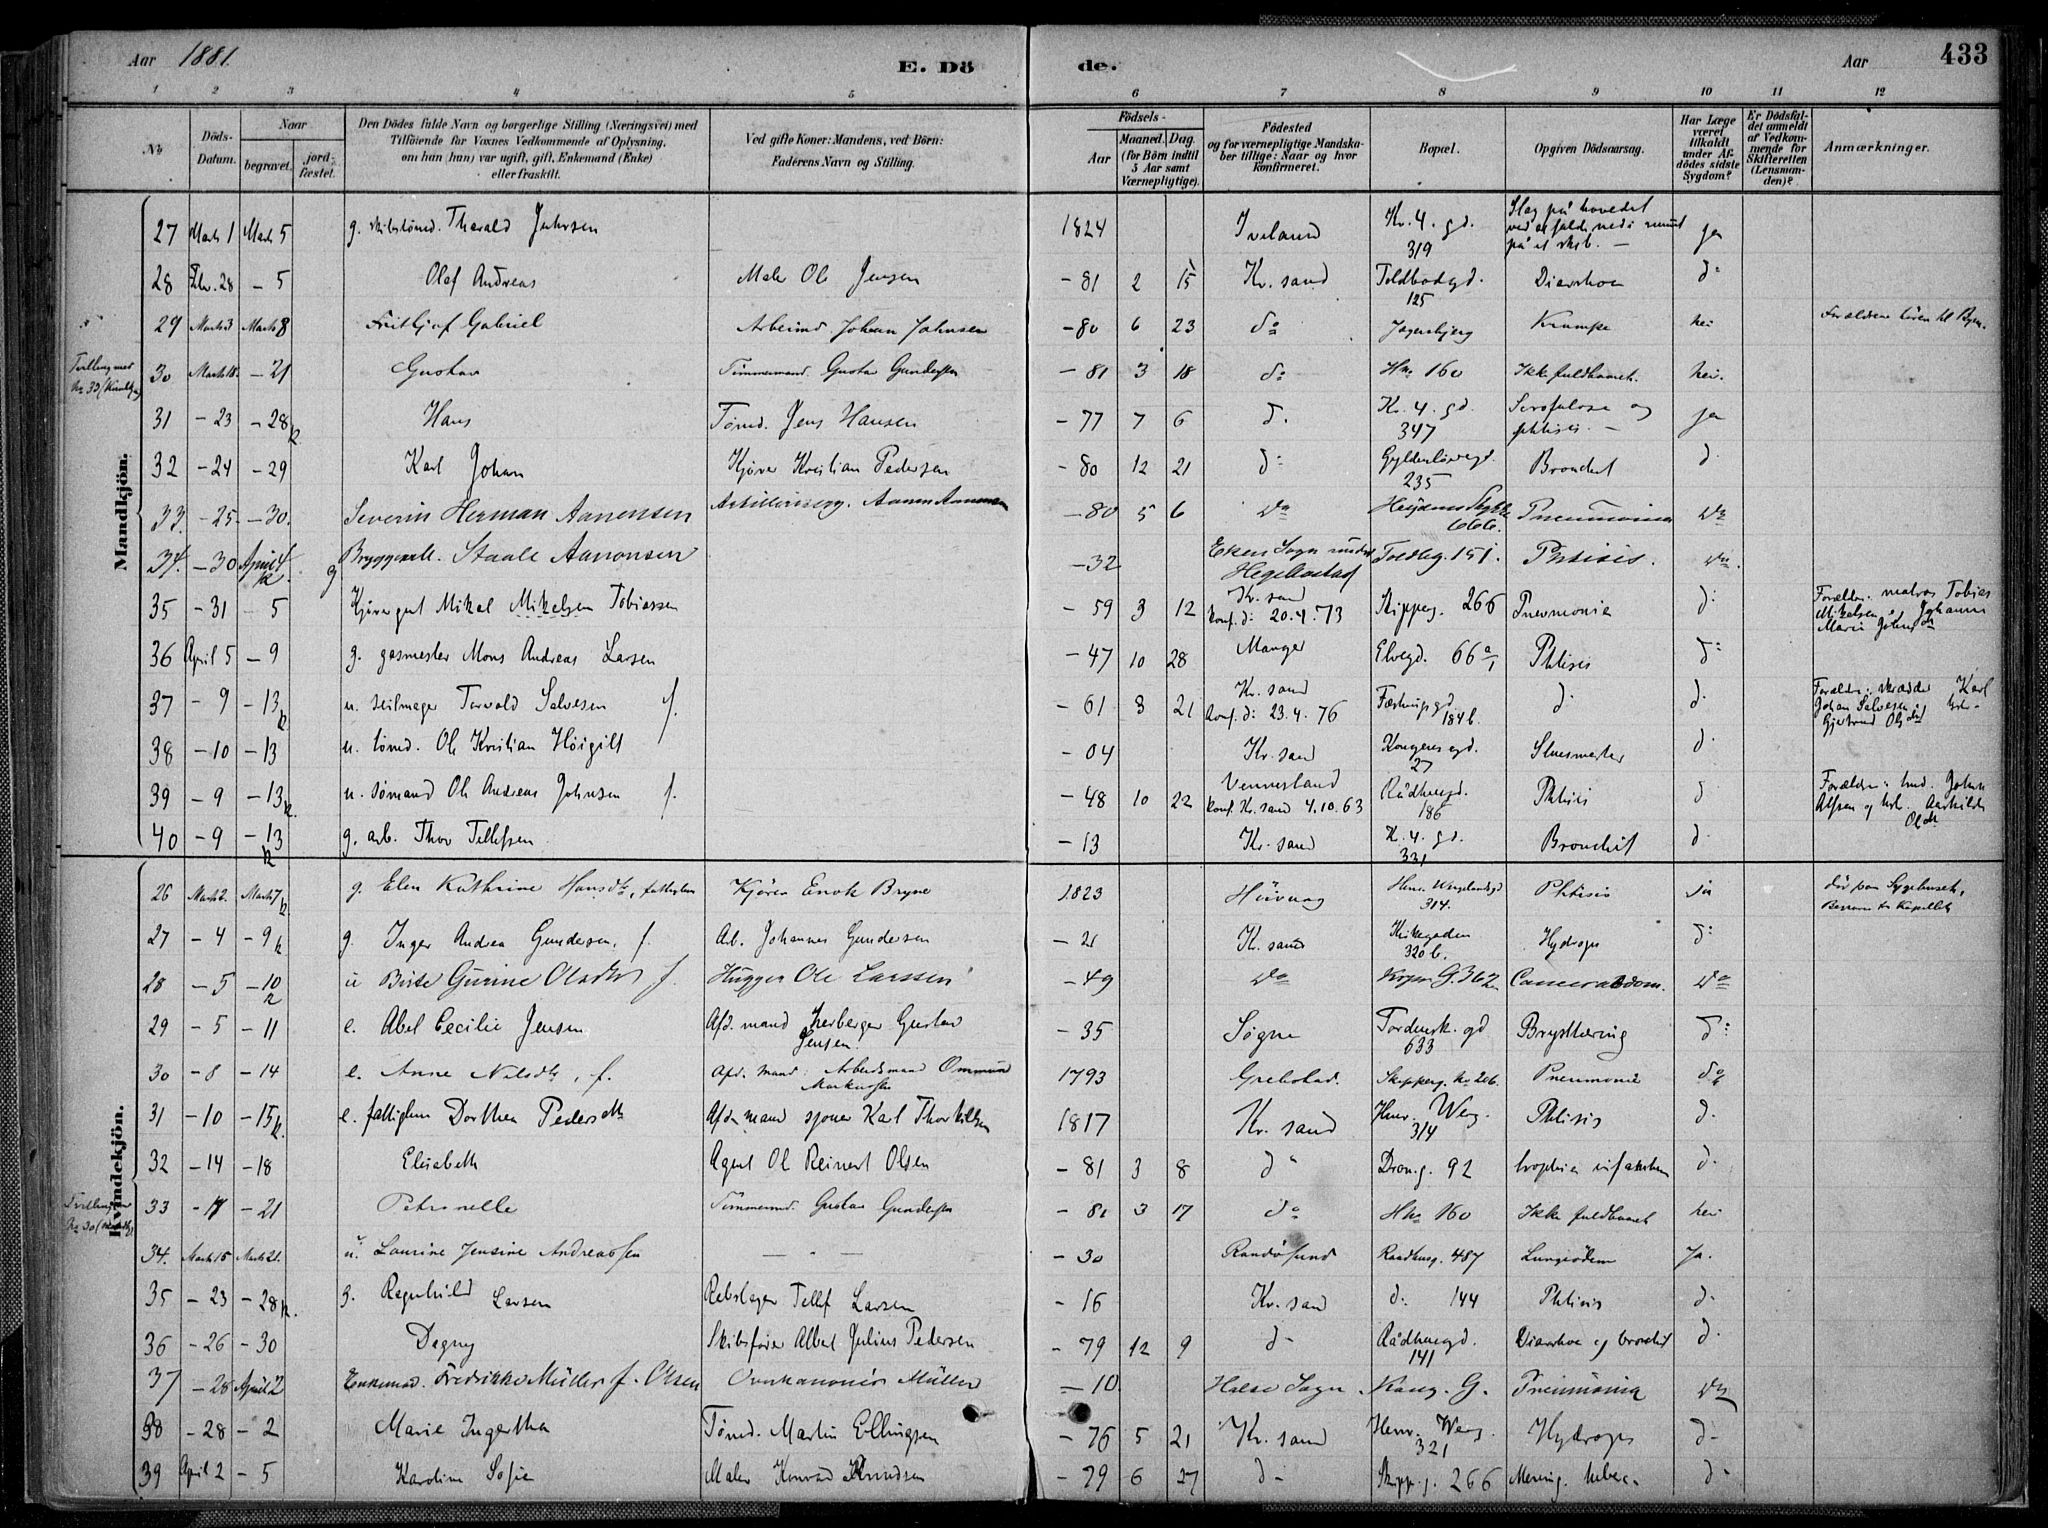 Aar 1881. E. Dö de. Aar 433
1 2 3 4 5 6 7 8 9 10 11 12
No
Döds-Datum.
Naar
begravet.
jord-fæstet.
Den Dödes fulde Navn og borgerlige Stilling (Næringsvei) med
Tilföiende for Voxnes Vedkommende af Oplysning.
om han (hun) var ugift, gift, Enkemand (Enke)
eller fraskilt.
Ved gifte Koner: Mandens, ved Börn:
Faderens Navn og Stilling.
Födsels-
Aar
Maaned. Dag.
(for Börn indtil
5 Aar samt
Værnepligtige).
Födested
og for værnepligtige Mandska-
ber tillige: Naar og hvor
konfirmeret.
Bopæl.
Opgiven Dödsaarsag.
Har Læge
været
tilkaldt
under Af-
dödes sidste
Sygdom?
Er Dödsfal-
det anmeldt
af Vedkom-
mende for
Skifteretten
(Lensman-
den)?
Anmærkninger.
Mandkjön.
27 Marts 1 Marts 5 g. Tharald 1824 Iveland Kr. 4. gd. 319 Slag på hovedet ved at falde ned i på et skib. — ja
28 Febr. 28 - 5 Olaf Andreas Maler Ole Jensen - 81 2 15 Kr.sand Toldbodgd. 125 Diarrhoe do
29 Marts 3 Marts 8 Frithjof Gabriel Arbeimd. Johan Johnsen - 80 6 23 do Jegersbjerg Krampe nei Forældrene hören til Byen.
Tvilling med No 33 (Kvindkj.)
30 Marts 18 - 21 Gustav Tømmermand. Gustav Gundersen - 81 3 18 do Hno 160 Ikke fuldbaaret. nei.
31 - 23 - 28 k Hans Tømd. Jens Hansen - 77 7 6 do Kr. 4. gd. 347 Scrofulose og phtisis. — ja
32 - 24 - 29 Karl Johan Kjører Kristian Pedersen - 80 12 21 do Gyldenløvesgd. 235 Bronchit do
33. - 25 - 30. Severin Herman Aanensen Aanen Aanensen - 80 5 6 Do 666. Pneumonia Do
34. - 30 April 4 k g Staale Aanonsen - 32 Eken Sogn under Hegebostad Toldbg. 151. Phtisis. Do.
35 - 31 - 5 Kjøregut Mikal Mikelsen Tobiassen - 59 3 12 Kr.sand konf. do 20.4.73 Skipperg. 266 Pneumonie do Forældre: matros Tobias Mikelsen Johanne Marie
36 April 5 - 9 g. gasmester Mons Andreas Larsen - 47 10 28 Manger Elvegd. 66 a/1 Phtisis do
37 - 9 - 13 k u. seilmager Torvald Salvesen f. - 61 8 21 Kr.sand Konf. do 23.4.76 Festningsgd. 184 b. do do Forældre: skrædder Karl Johan Salvesen Gjertrud
38 - 10 - 13 u. tømd. Ole Kristian Höigilt - 04 Kr.sand Kongensgd. 27 do
39 - 9 - 13 k. u. sømand Ole Andreas Johnsen f. - 48 10 22 Vennesland konf. Kr.sand 4.10.63 Rådhusgd. 186 Phtisis do Forældre: hmd. John Alfsen og hst. Aashilde
40 - 9 - 13 k g. arb. Thor Tellefsen - 13 Kr.sand K. 4. gd. 331 Bronchit do
Kvindekjön.
26 Marts 2. Marts 7 k. g. Elen Kathrine Hansdtr, fattiglem Kjører Enok Bryne 1823 Höivaag Henr. Wergelandsgd 314. Phtisis ja död paa Sygehuset,
27 - 4 - 9 k g. Inger Andrea Gundersen, f. Arb. Johannes Gundersen - 21 K.sand Kirkegaden 320 b. Hydrops do
28 - 5 - 10 u Birte Gurine Olsdtr f. Hugger Ole Larssen - 49 Do G. 362 Cancer abdom. Do
29 - 5 - 11 e. Abel Cecilie Jensen Afd. mand Gustav Jensen - 35 Søgne Tordensk. gd 633 Brysttæring do
30 - 8 - 14 e. Anne Nilsdtr, f. Afd. mand: Arbeidsmand Ommund Markussen 1793 Grebstad. Skipperg. No 206. Pneumonie do
31 - 10 - 15 k. e. fattiglem Dorthea Pedersdtr Afd. mand Karl Thorkilsen 1817 Kr.sand Henr. Werg. 314 Phtisis do
32 - 14 - 18 Elisabeth Agent Ol. Reinert Olsen - 81 3 8 do Dron.g. 92 do
Tvilling med No 30
33 - 17 - 21 Petronelle Tømmermd. Gustav Gundersen - 81 3 17 do Hno 160 Ikke fuldbaaret nei
34. Marts 15 Marts 21. u. Laurine Jensine Andreassen — — — - 30 Randøsund Raadhusg. 487 Lungeödem Ja.
35 - 23 - 28 k. g. Regnhild Larsen Rebslager Tellef Larsen - 16 Kr.sand do 144 Phtisis do
36 - 26 - 30 Dagny Skibsfører Albert Julius Pedersen - 79 12 9 do Rådhusgd. 141 Diarrhoe og bronchit do
37 - 28 April 2 Enkemad. Fredrikke Müller f. Olsen Overkanonér Müller - 10. Halse Sogn. Kong. G. Pneumonia Do
38 - 28 - 2 Marie Ingertha Tømd. Martin Ellingsen - 76 5 21 Kr.sand Henr. Werg. 321 Hydrops do
39 April 2 - 5 Karoline Sofie Maler Konrad Knudsen - 79 6 27 do Skipp.g. 266 Mening. tuberc. do